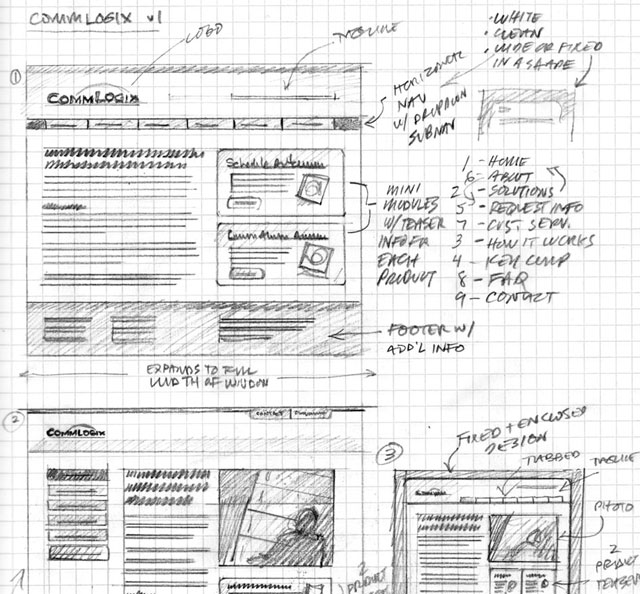 COMMLOGIX v1
LOGO
TAGLINE
• WHITE
• CLEAN
• WIDE OR FIXED
IN A SHAPE
1
COMMLOGIX
HORIZONTAL
NAV
W/ DROPDOWN
SUBNAV
MINI
MODULES
W/TEASER
INFO FOR
EACH
PRODUCT
1 - HOME
6 - ABOUT
2 - SOLUTIONS
5 - REQUEST INFO
7 - CUST. SERV.
3 - HOW IT WORKS
4 - KEY COMP
8 - FAQ
9 - CONTACT
FOOTER W/
ADD'L INFO
EXPANDS TO FULL
WIDTH OF WINDOW
2
CONTACT
COMMLOGIX
2
PRODUCT
3
FIXED + ENCLOSED
DESIGN
TABBED
TAGLINE
PHOTO
2
PRODUCT
TEASERS
1